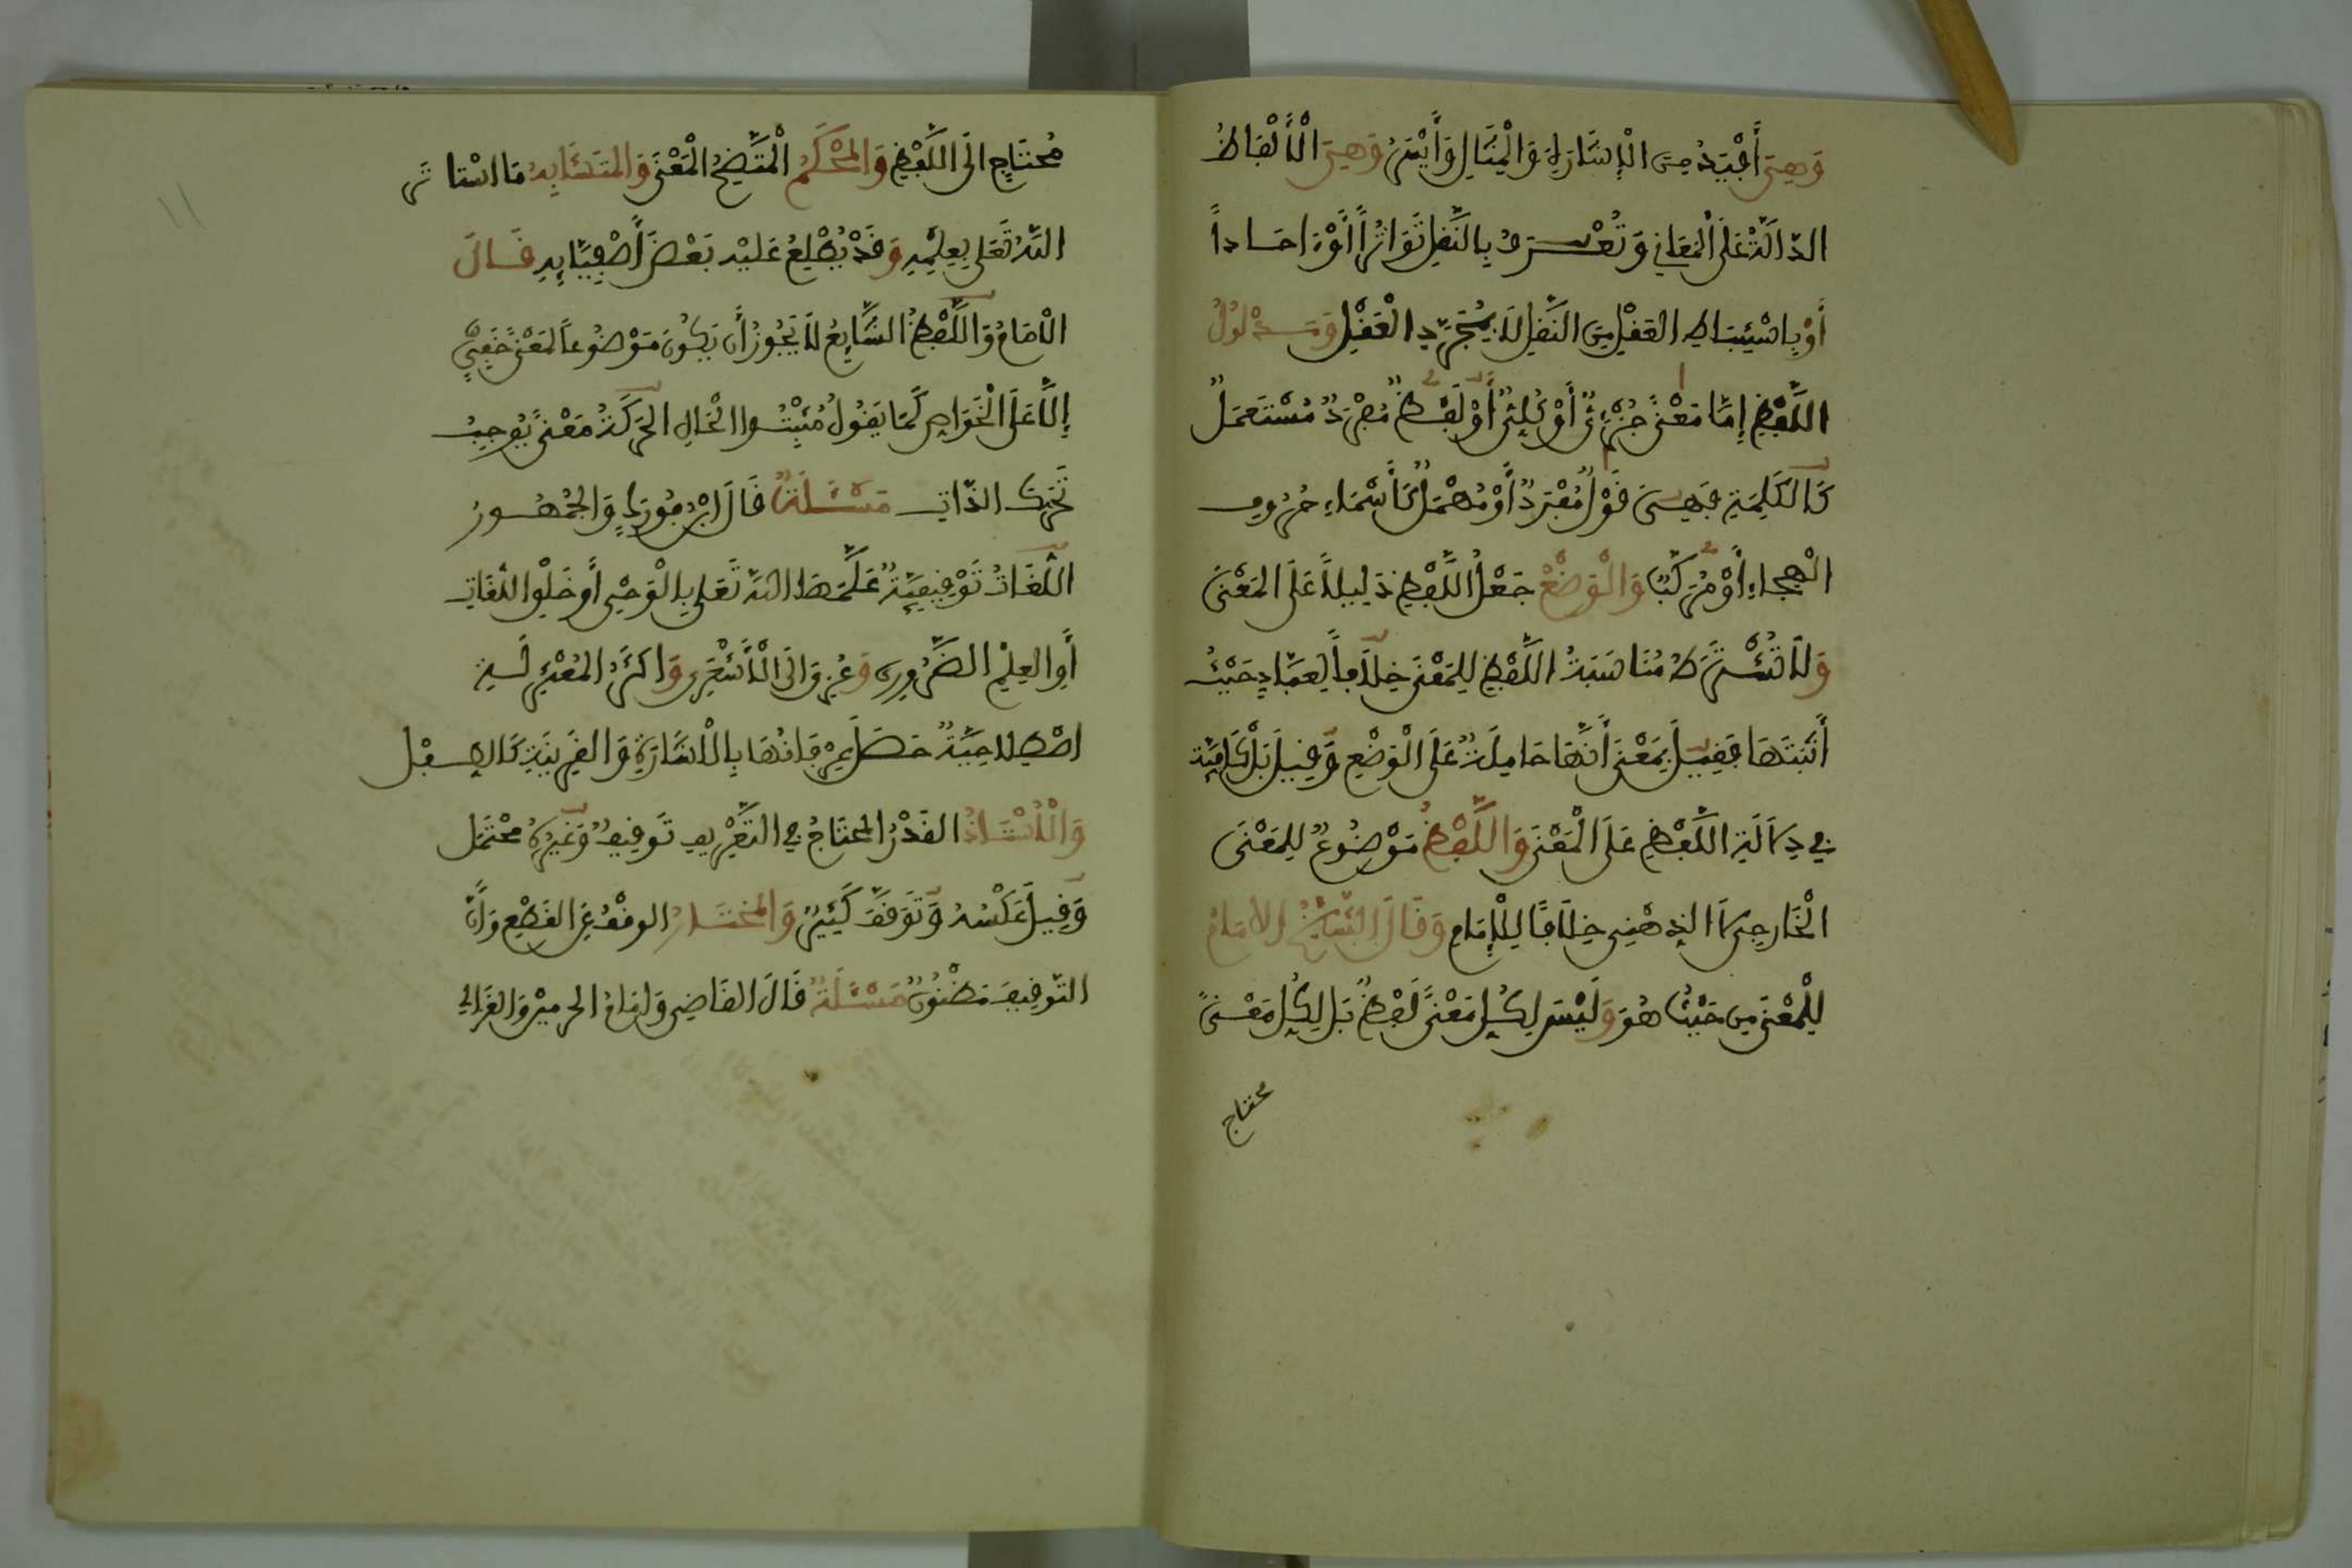 وَهِيَ أَفْيَدُ مِنَ الْإِشَارَةِ وَالْمِثَالِ وَأَيْسَرُ وَهِيَ الْأَلْفَاظُ
الدَّالَّةُ عَلَى الْمَعَانِي وَتُعْرَفُ بِالنَّقْلِ تَوَاتُراً أَوْ ءَاحَاداً
أَوْ بِاسْتِنْبَاطِ الْعَقْلِ مِنَ النَّقْلِ لَا بِمُجَرَّدِ الْعَقْلِ وَمَدْلُولُ
اللَّفْظِ إِمَّا مَعْنًى جُزْءِيٌّ أَوْ كُلِّيٌّ أَوْ لَفْظٌ مُفْرَدٌ مُسْتَعْمَلٌ
كَالْكَلِمَةِ فَهِيَ قَوْلٌ مُفْرَدٌ أَوْ مُهْمَلٌ كَأَسْمَاءِ حُرُوفِ
الْهِجَاءِ أَوْ مُرَكَّبٌ وَالْوَضْعُ جَعْلُ اللَّفْظِ دَلِيلاً عَلَى الْمَعْنَى
وَلَا تُشْتَرَطُ مُنَاسَبَةُ اللَّفْظِ لِلْمَعْنَى خِلَافاً لِعَبَّادٍ حَيْثُ
أَثْبَتَهَا فَقِيلَ بِمَعْنَى أَنَّهَا حَامِلَةٌ عَلَى الْوَضْعِ وَقِيلَ بَلْ كَافِيَة
فِي دِلَالَةِ اللَّفْظِ عَلَى الْمَعْنَى وَاللَّفْظُ مَوْضُوعٌ لِلْمَعْنَى
الْخَارِجِي لَا الذِّهْنِي خِلَافًا لِلْإِمَامِ وَقَالَ الشَّيْخُ الامَامُ
لِلْمَعْنَى مِن حَيْثُ هُوَ وَلَيْسَ لِكُلِّ مَعْنًى لَفْظٌ بَلْ لِكُلِّ مَعْنًى
محتاج
مُحْتَاجٍ الَى اللَّفْظِ وَالْمُحْكَمُ الْمُتَّضِحُ الْمَعْنَى وَالْمُتَشَابِهُ مَا اسْتَاثَرَ
اللَّهُ تَعَلَى بِعِلْمِهِ وَقَدْ يُطْلِعُ عَلَيْهِ بَعْضَ أَصْفِيَائِهِ قَالَ
الْامَامُ وَاللَّفْظُ الشَّايِعُ لَا يَجُوزُ أَن يَكُونَ مَوْضُوعاً لِمَعْنًى خَفِيٍّ
إِلَّا عَلَى الْخَوَاصِ كَمَا يَقُولُ مُثْبِتُوا الْحَالِ الْحَرَكَةُ مَعْنًى يُوجِبُ
تَحَرُّكَ الذَّاتِ مَسْئَلَةٌ قَالَ ابْنُ فُورَكٍ وَالْجُمْهُورُ
اللُّغَاتُ تَوْقِيفِيَّةٌ عَلَّمَهَا اللَّهُ تَعَلَى بِالْوَحْيِ أَو خَلْقِ اللُّغَاتِ
أَوِ الْعِلْمِ الضَّرُورِي وَعُزِيَ الَى الْأَشْعَرِي وَاكْثَرُ الْمُعْتَزِلَةِ
اصْطِلَاحِيَّةٌ حَصَلَ عِرْفَانُهَا بِالْاشَارَةِ وَالْقَرِينَةِ كَالطِّفْلِ
وَالْاسْتَاذُ الْقَدْرُ الْمُحْتَاجُ فِي التَّعْرِيفِ تَوقِيفٌ وَغَيْرُهُ مُحْتَمَل
وَقِيلَ عَكْسُهُ وَتَوَقَّفَ كَثِيرٌ وَالْمُخْتَارُ الوقْفُ عَنِ الْقَطْعِ وَأَنَّ
التَّوقِيفَ مَظْنُونٌ مَسْئَلَةٌ قَالَ الْقَاضِي وَامَامُ الْحَرَمَيْنِ وَالْغَزَالِي